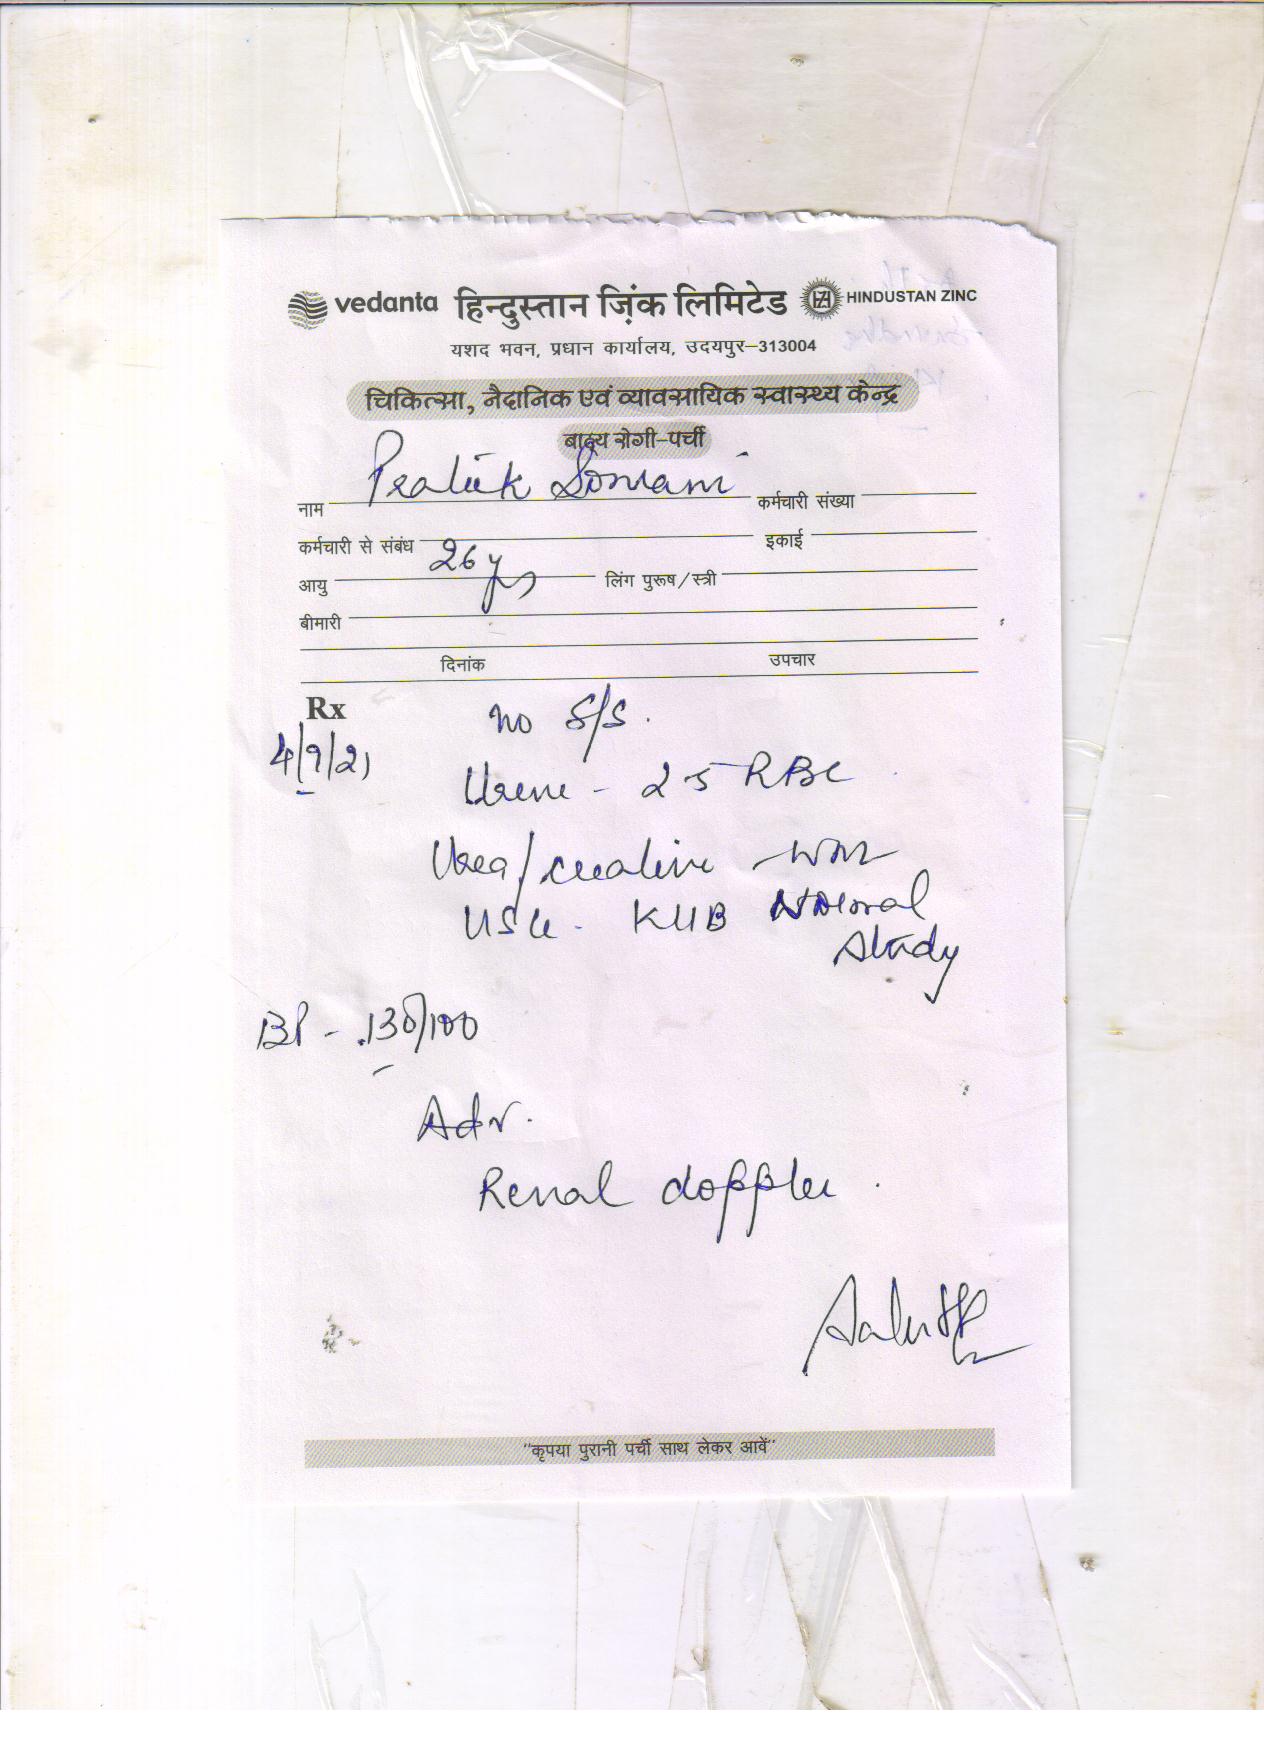 vedanta हिन्दुस्तान ज़िंक लिमिटेड HINDUSTAN ZINC
यशद भवन, प्रधान कार्यालय, उदयपुर–313004
चिकित्सा, नैदानिक एवं व्यावसायिक स्वास्थ्य केन्द्र
बाह्य रोगी–पर्ची
नाम Pratik Somani कर्मचारी संख्या
कर्मचारी से संबंध इकाई
आयु 26 yrs लिंग पुरूष/स्त्री
बीमारी
दिनांक उपचार
Rx no S/S.
4/9/21
Urene - 2-5 RBC
Urea/creatine - WNL
USG - KUB Normal
Study
BP - 130/100
Adv.
Renal doppler.
"कृपया पुरानी पर्ची साथ लेकर आवें"